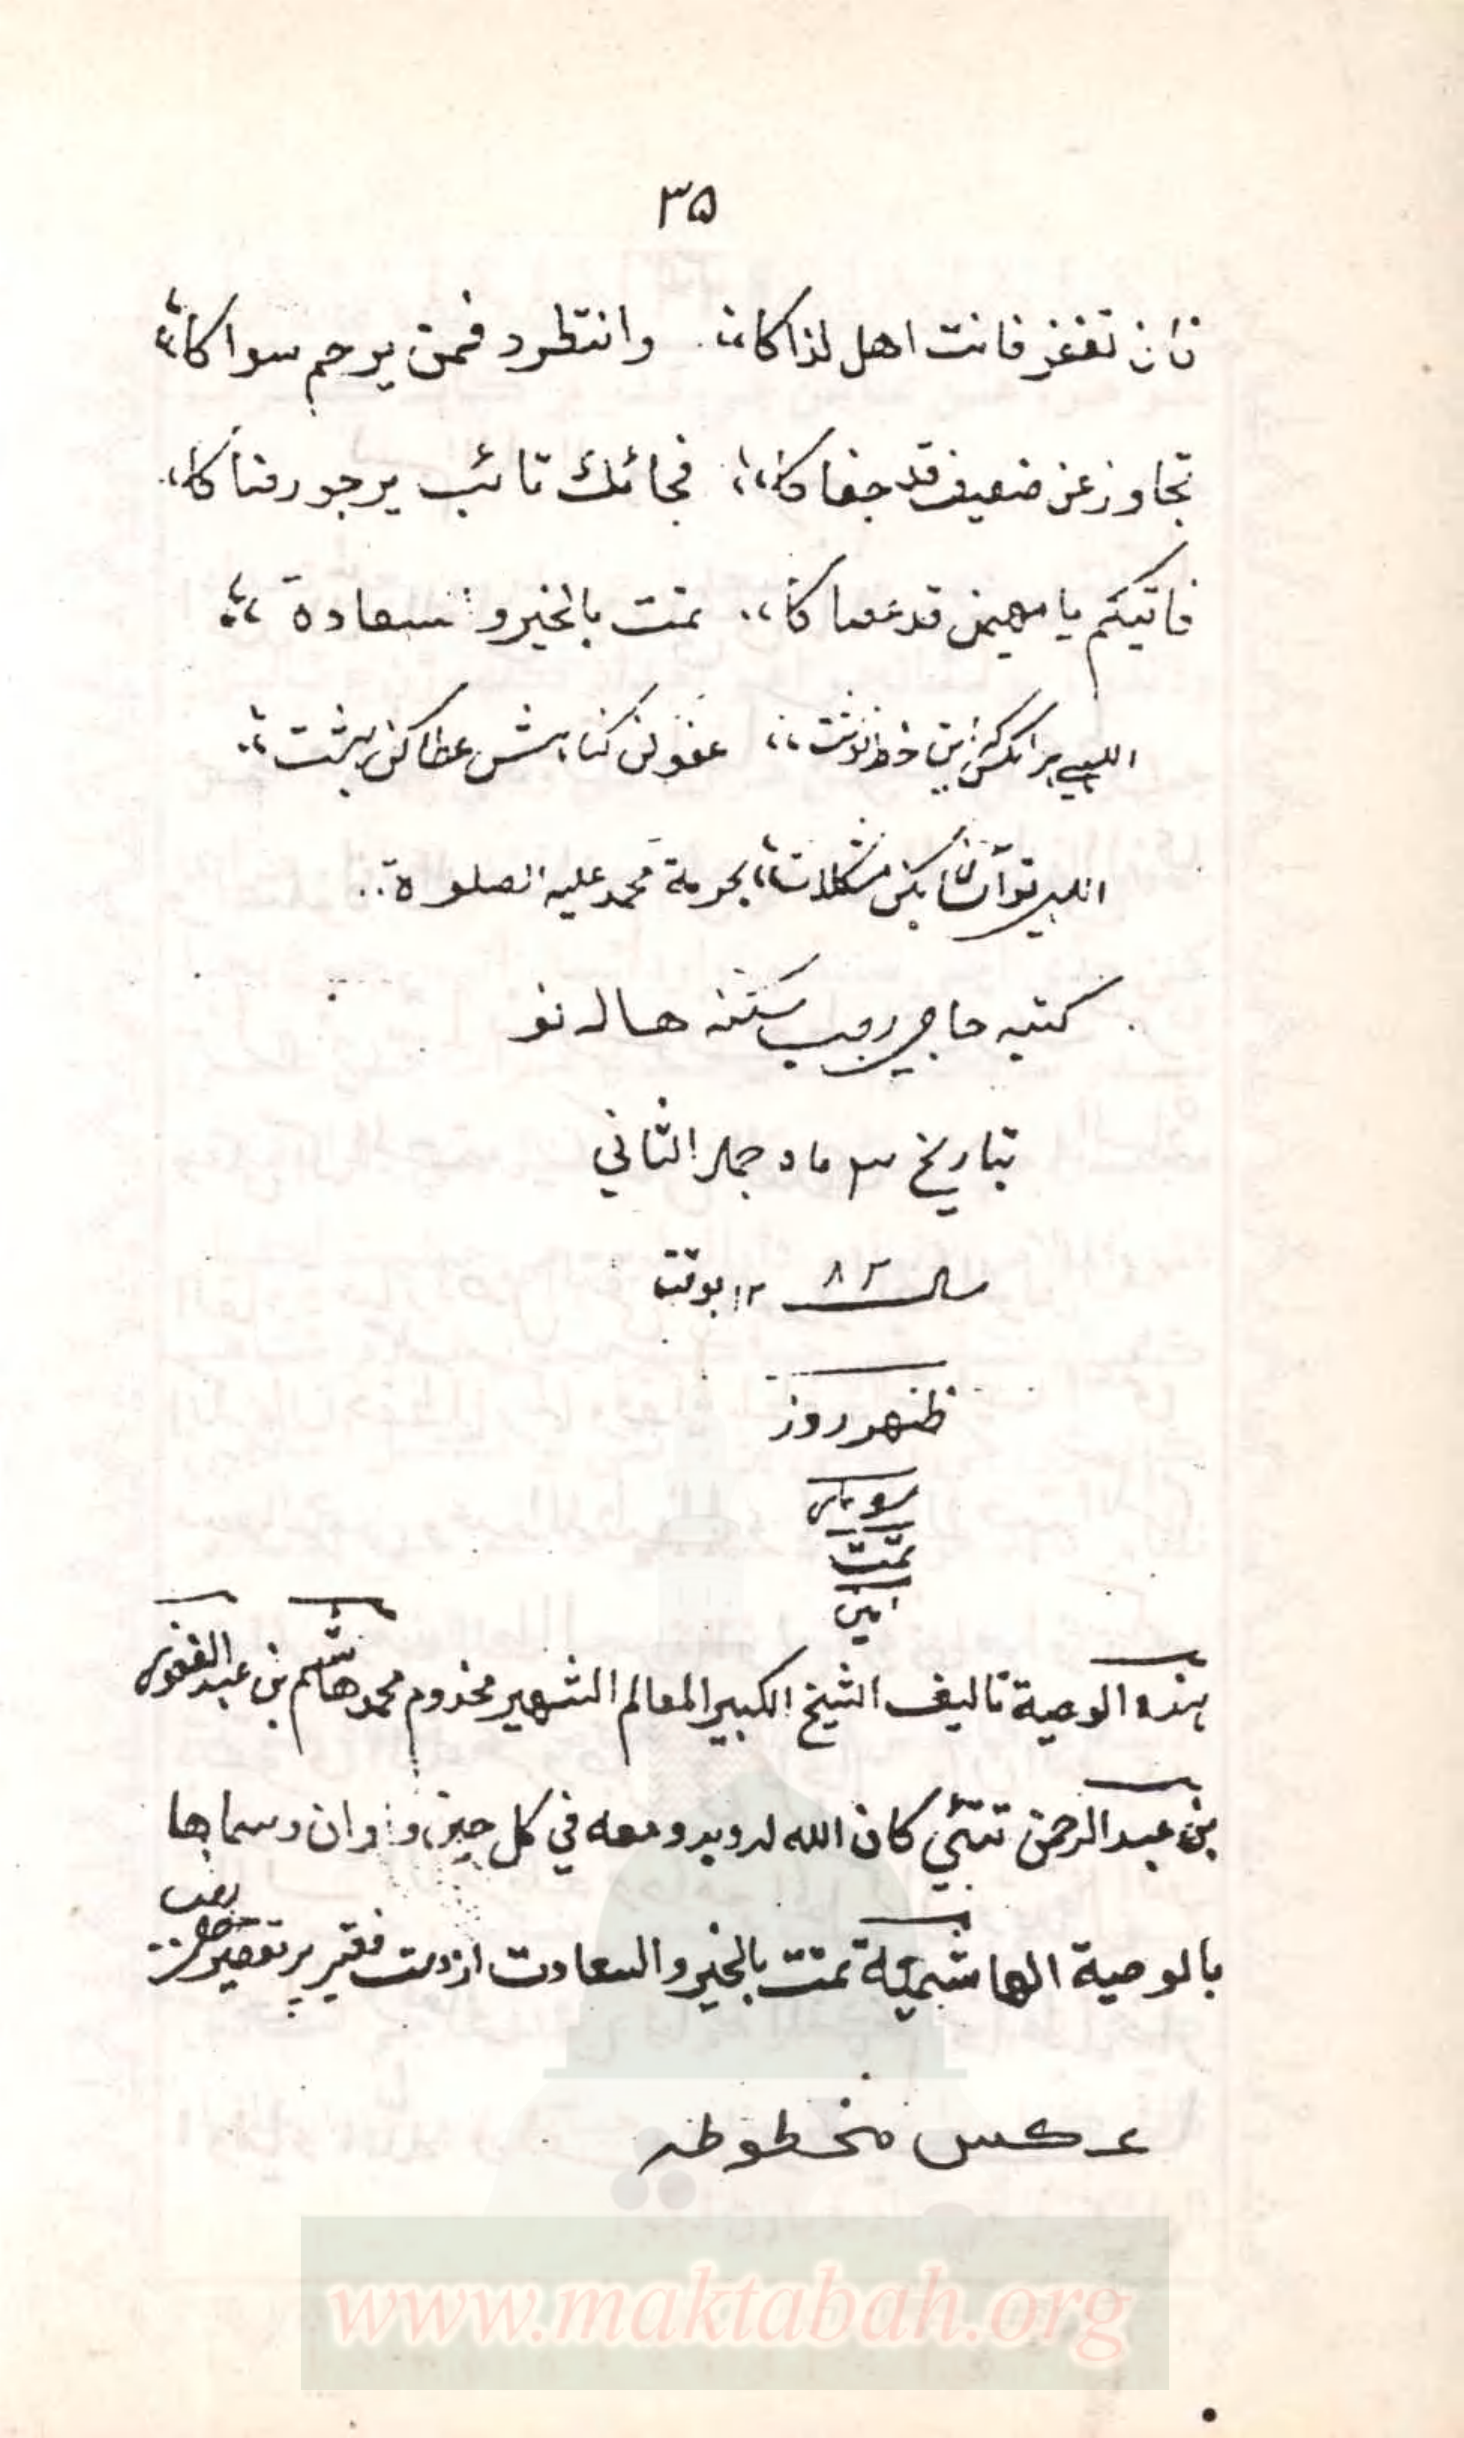 ۳۵
فان تغفر فانت اهل لذاکا وان تطرد فمن یرحم سواکا
تجاوز عن ضعیف قد جفاکا فجائك تائب یرجو رضاکا
فاتیکم یا مهیمن قد عصاکا تمت بالخیر و سعادة
الهی هر آنکس که این خط نوشت عفو کن گناهش عطا کن بهشت
الهی تو آسان بکن مشکلات بحرمة محمد علیه الصلوة
کتبه حاجی رجب سکنه هاله نو
بتاریخ ۳ ماه جماد الثاني
سال ۸۲ ۱۲ بوقت
ظهر روز
تمت
امین
هذه الوصیة تالیف الشیخ الکبیر العالم الشهیر مخدوم محمد هاشم بن عبد الغفور
بن عبد الرحمن تتئي کان الله له وبه ومعه في کل حین و اوان وسماها
بالوصیة الهاشمیة تمت بالخیر والسعادت از دست فقیر پر تقصیر
عکس مخطوطه
www.maktabah.org